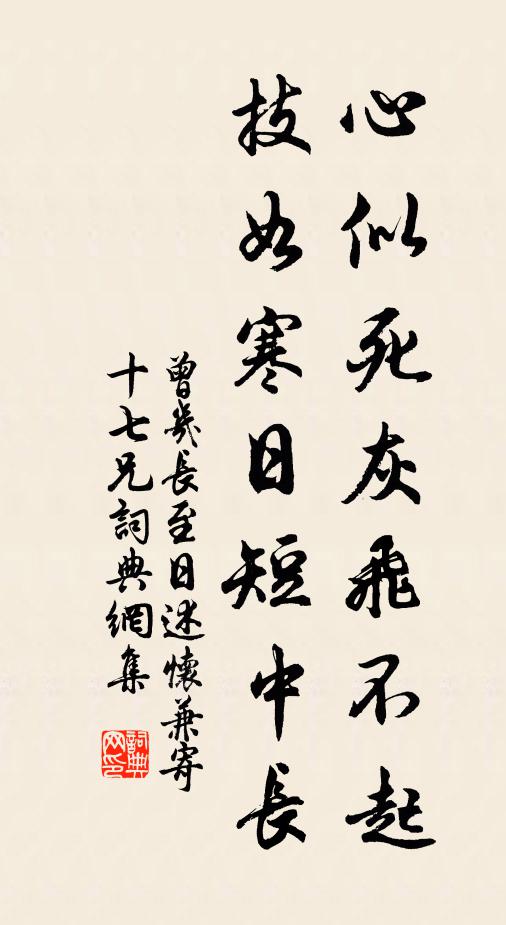 心似死灰飛不起
技如寒日短中長
曾幾長至日述懷兼寄
十七兄詞典網集
詞典
网印